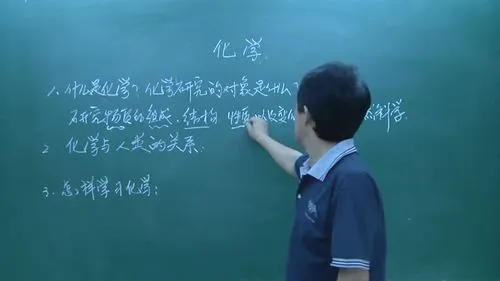 化学
1. 什么是化学？化学研究的对象是什么？
研究物质的组成、结构 性质 以及变 的科学.
2 化学与人类的关系.
3. 怎样学习化学：